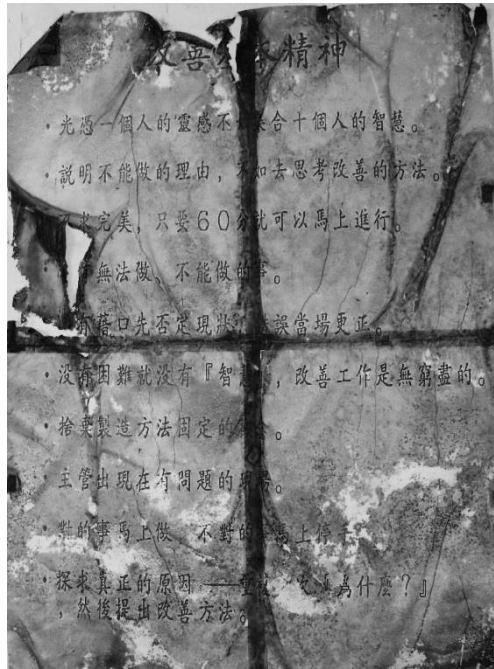 改善基本精神
・光憑一個人的靈感不如集合十個人的智慧。
・說明不能做的理由，不如去思考改善的方法。
不求完美，只要60分就可以馬上進行。
無法做，不能做的事。
有藉口先否定現狀，錯誤當場更正。
・没有困難就没有『智慧』，改善工作是無窮盡的。
・捨棄製造方法固定的觀念。
・主管出現在有問題的現場。
・對的事馬上做 不對的事馬上停止
・探求真正的原因——重複 次『為什麼？』
，然後提出改善方法。